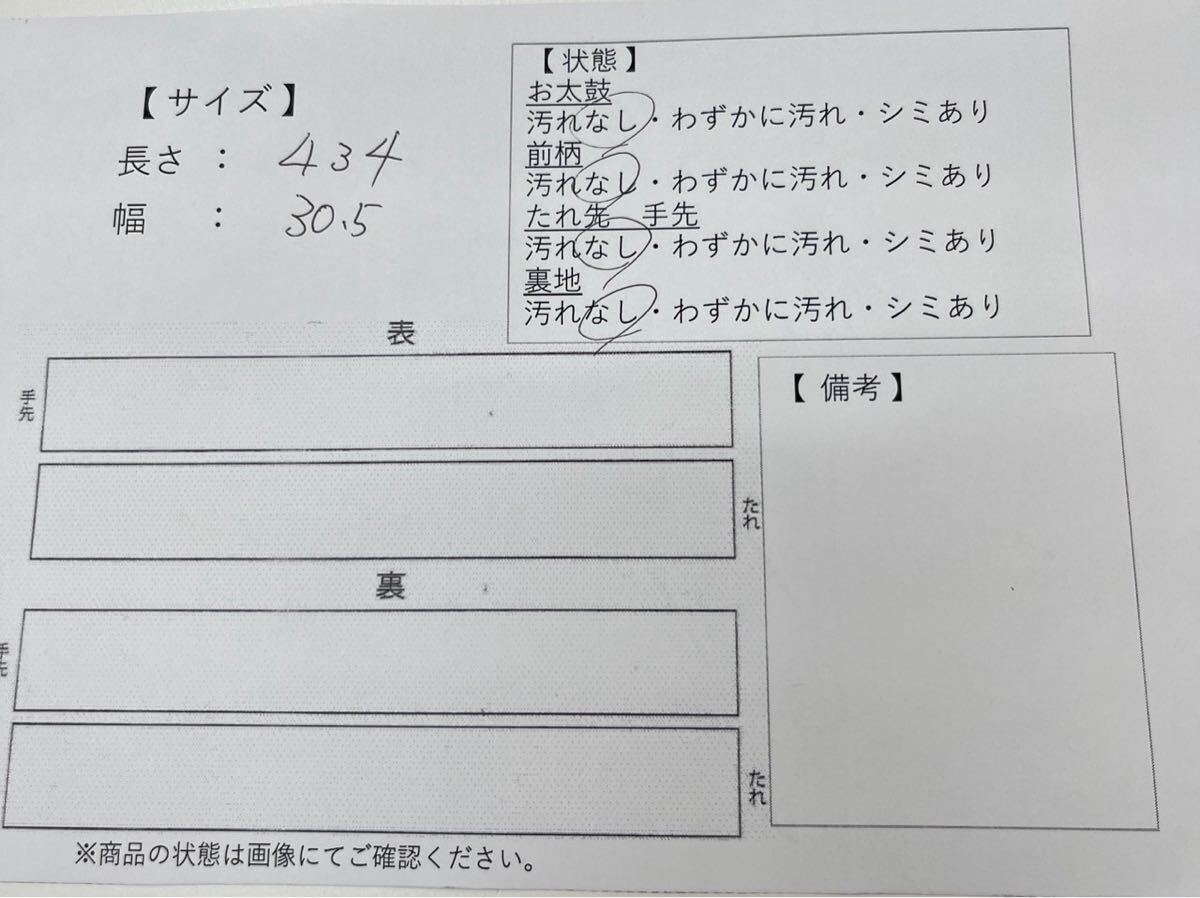 【サイズ】
長さ : 434
幅 : 30.5
【状態】
お太鼓
汚れなし・わずかに汚れ・シミあり
前柄
汚れなし・わずかに汚れ・シミあり
たれ先 手先
汚れなし・わずかに汚れ・シミあり
裏地
汚れなし・わずかに汚れ・シミあり
表
手先
たれ
裏
手先
たれ
【備考】
※商品の状態は画像にてご確認ください。